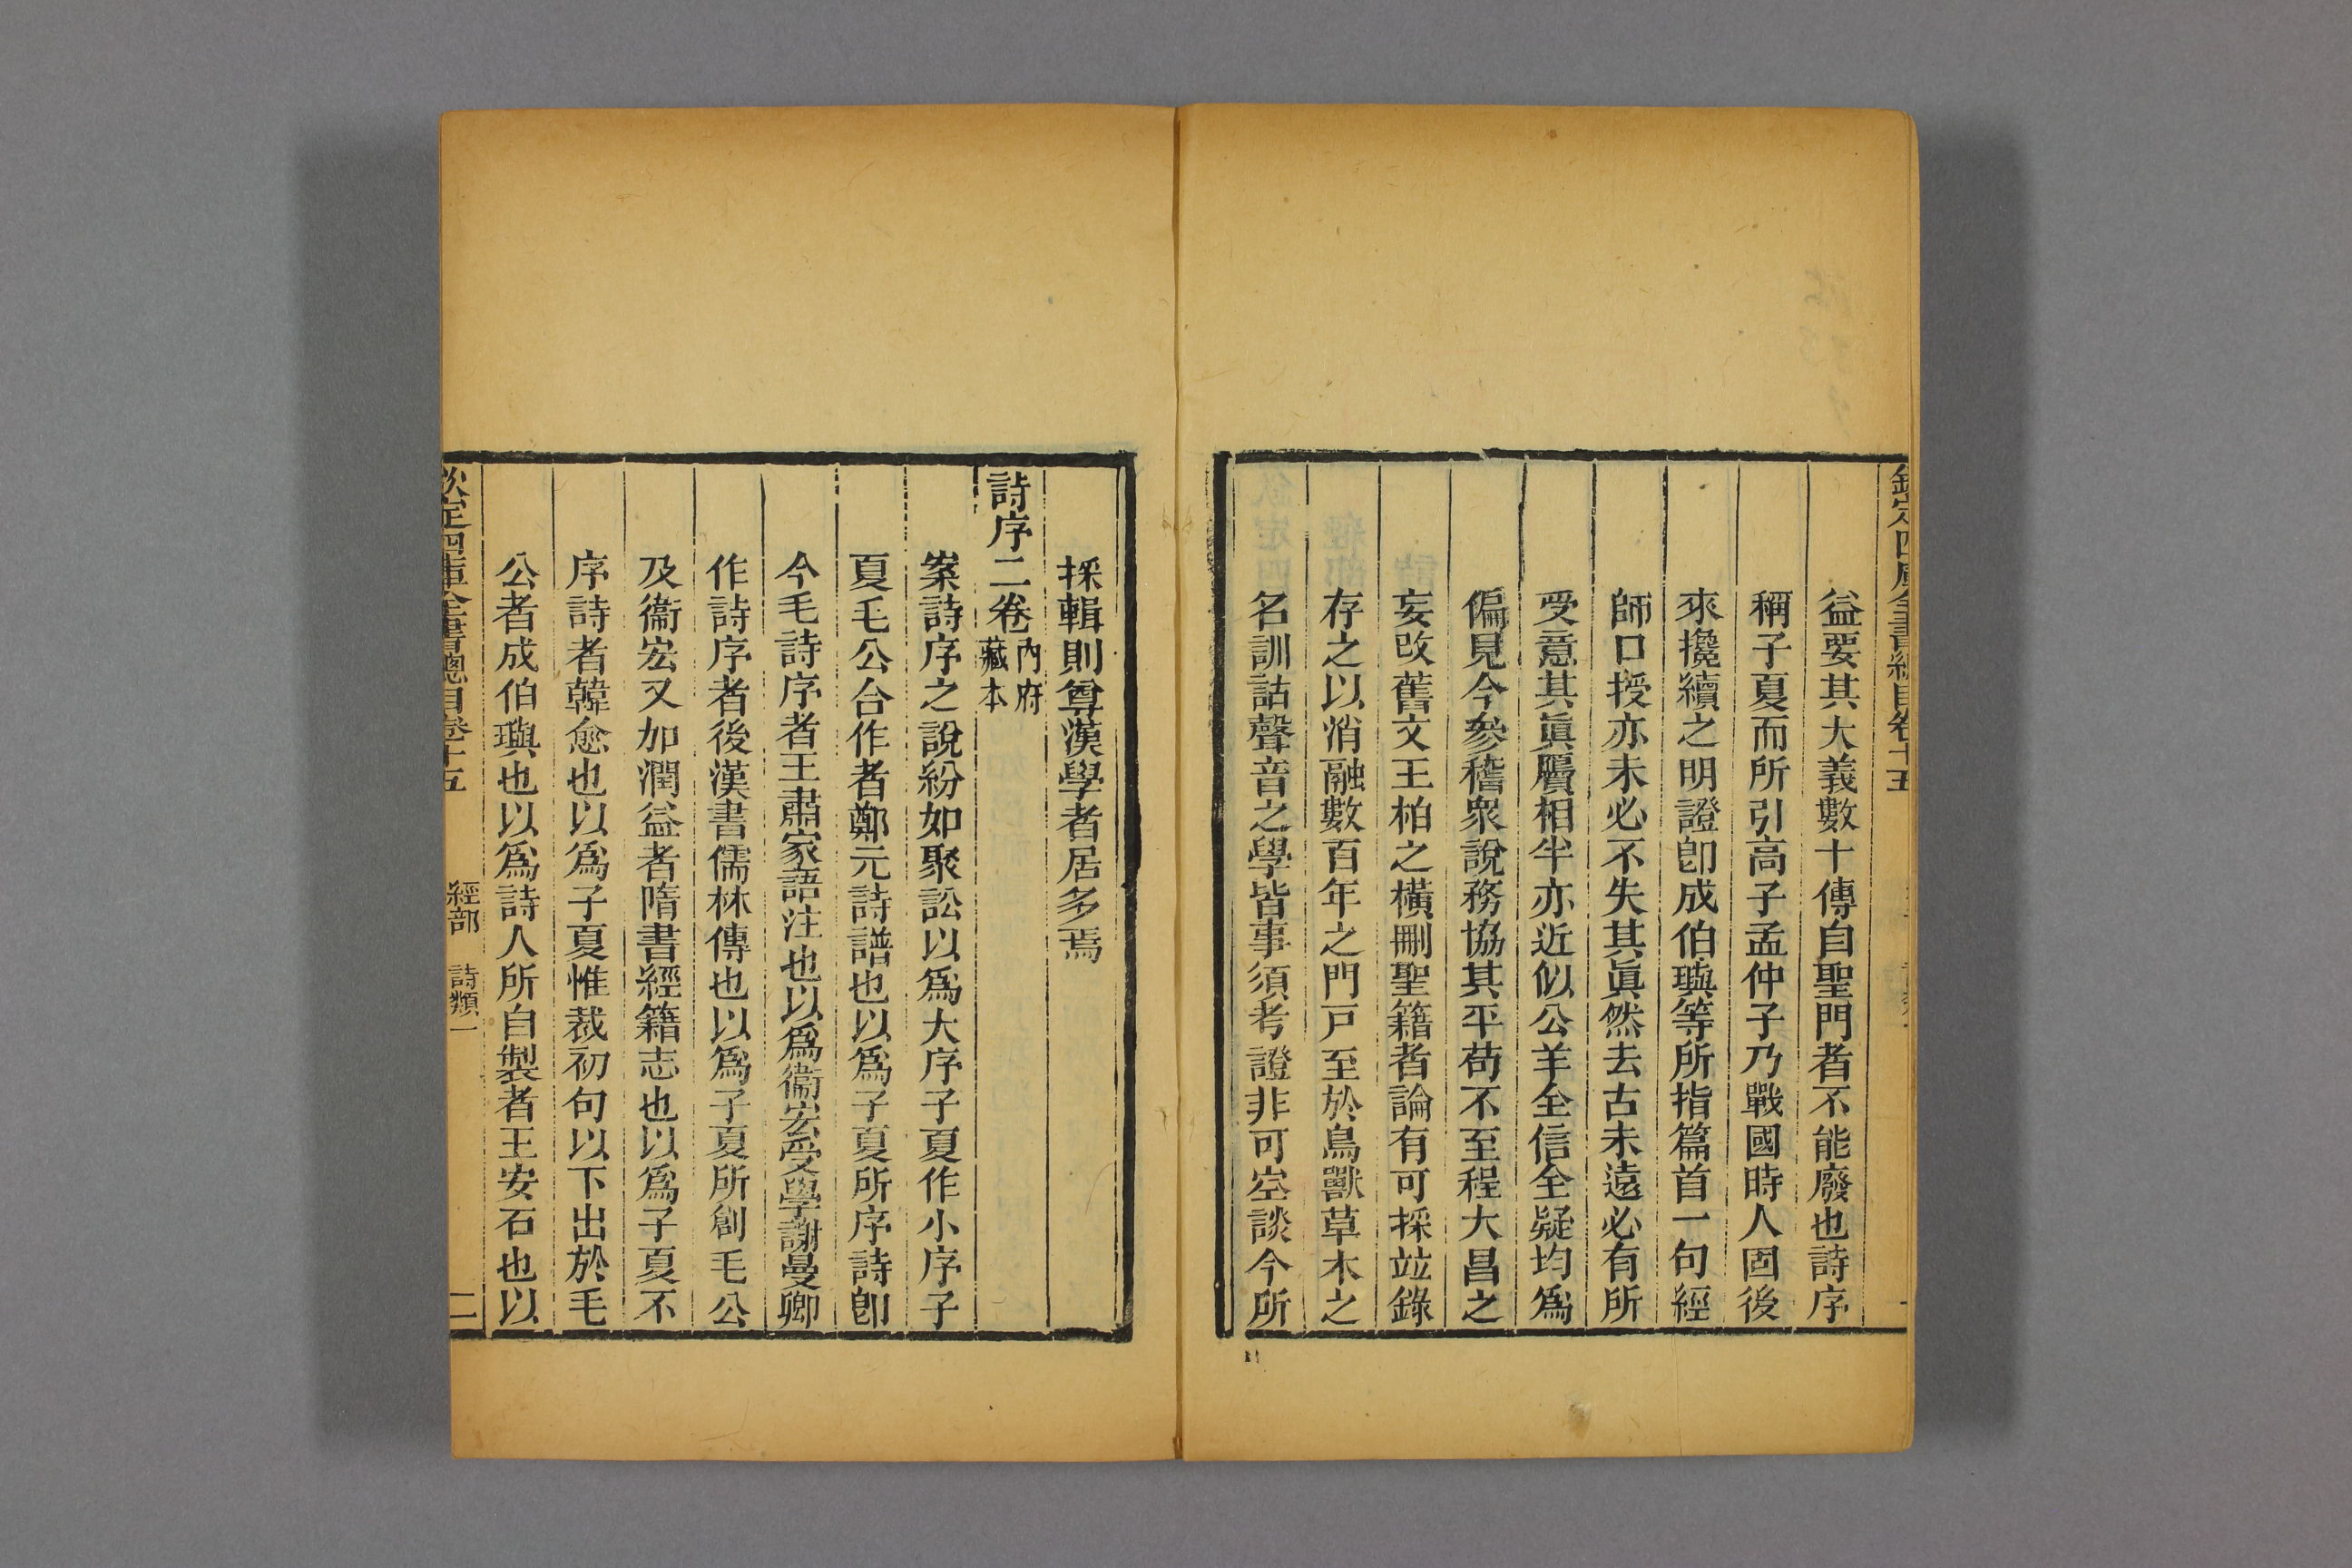 欽定四庫全書總目卷十五
益要其大義數十傳自聖門者不能廢也詩序
稱子夏而所引高子孟仲子乃戰國時人固後
來攙續之明證卽成伯璵等所指篇首一句經
師口授亦未必不失其眞然去古未遠必有所
受意其眞贋相半亦近似公羊全信全疑均爲
偏見今參稽衆說務協其平苟不至程大昌之
妄改舊文王柏之橫刪聖籍者論有可採竝錄
存之以消融數百年之門戸至於鳥獸草木之
名訓詁聲音之學皆事須考證非可空談今所
採輯則尊漢學者居多焉
詩序二卷內府藏本
案詩序之說紛如聚訟以爲大序子夏作小序子
夏毛公合作者鄭元詩譜也以爲子夏所序詩卽
今毛詩序者王肅家語注也以爲衞宏受學謝曼卿
作詩序者後漢書儒林傳也以爲子夏所創毛公
及衞宏又加潤益者隋書經籍志也以爲子夏不
序詩者韓愈也以爲子夏惟裁初句以下出於毛
公者成伯璵也以爲詩人所自製者王安石也以
欽定四庫全書總目卷十五 經部 詩類一 二